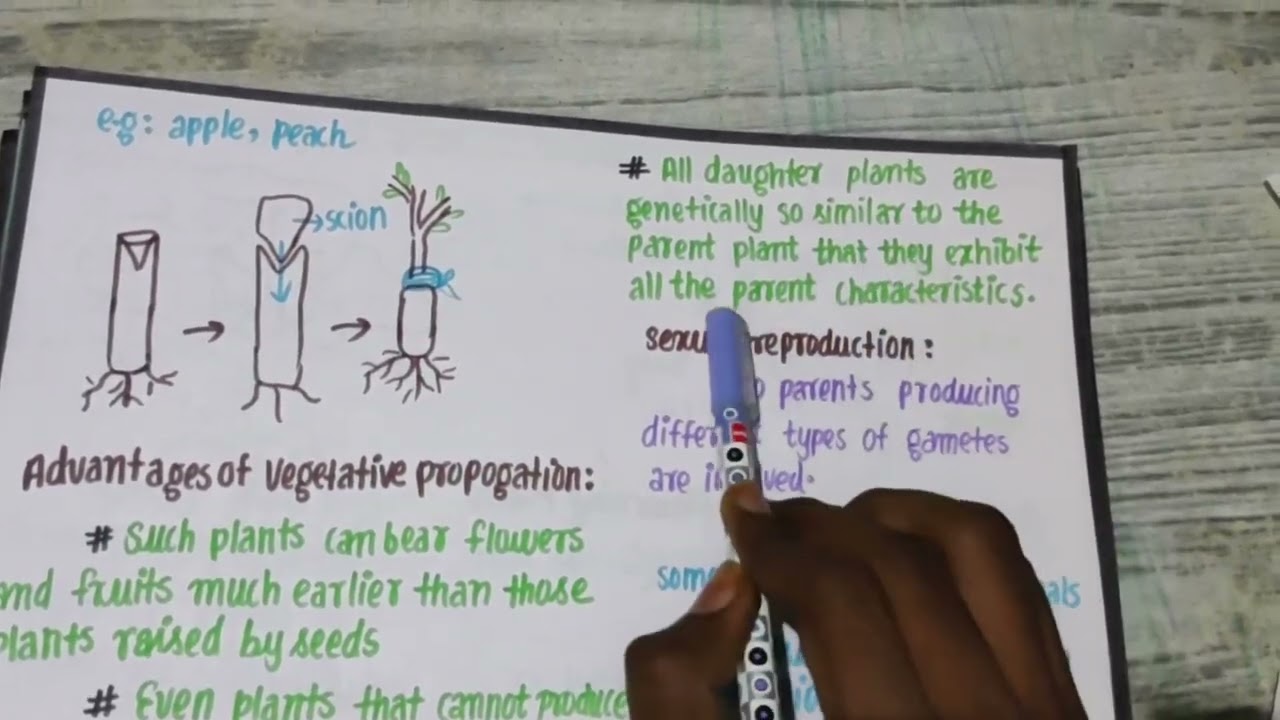 e.g: apple, peach
scion
Advantages of vegetative propogation:
# Such plants can bear flowers
and fruits much earlier than those
plants raised by seeds
# Even plants that cannot produce
# All daughter plants are
genetically so similar to the
parent plant that they exhibit
all the parent characteristics.
reproduction:
parents producing
types of gametes
are